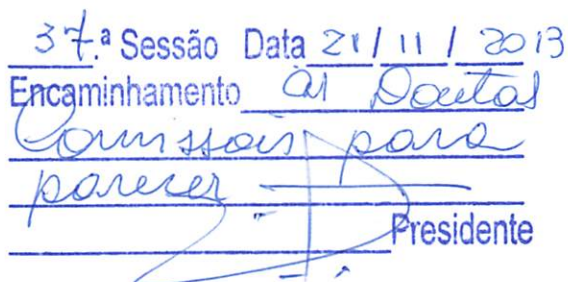 37.ª Sessão Data 21/11/2013
Encaminhamento às Doutas
Comissões para
parecer
Presidente